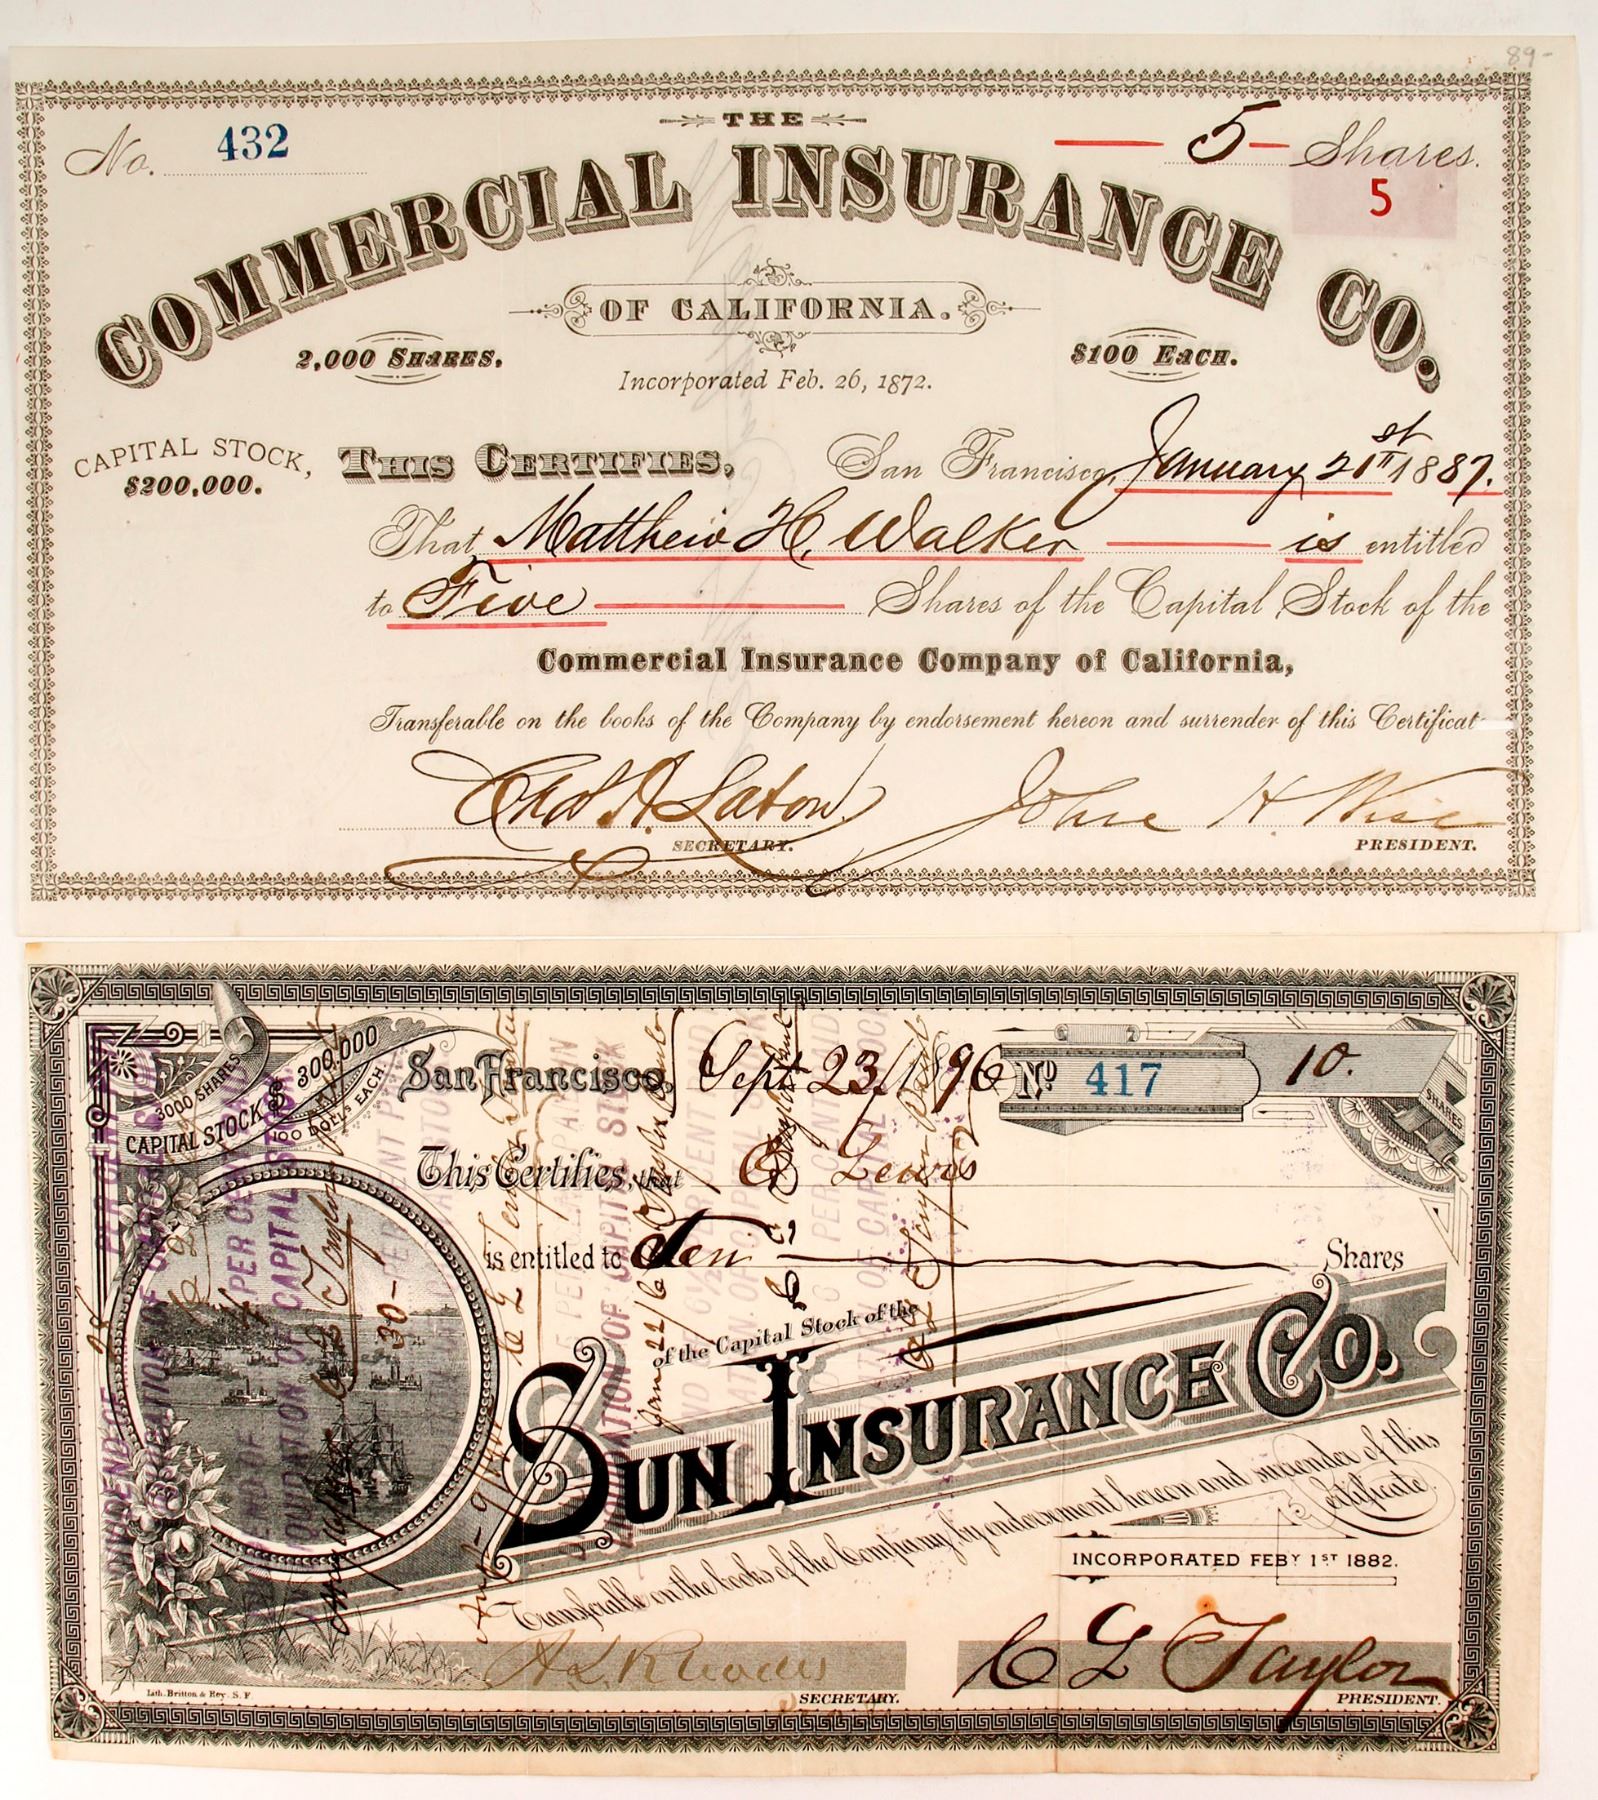 89-
THE
No. 432
5 Shares.
5
COMMERCIAL INSURANCE CO.
OF CALIFORNIA.
2,000 SHARES.
$100 EACH.
Incorporated Feb. 26, 1872.
CAPITAL STOCK,
$200,000.
THIS CERTIFIES,
San Francisco, January 21st 1887.
That Matthew H. Walker is entitled
to Five Shares of the Capital Stock of the
Commercial Insurance Company of California,
Transferable on the books of the Company by endorsement hereon and surrender of this Certificat
Chas A. Laton
John H. Wise
SECRETARY.
PRESIDENT.
3000 SHARES
CAPITAL STOCK $ 300,000
100 DOLLS EACH
San Francisco, Sept 23/1896
No 417
10.
SHARES
This Certifies, that C Lewis
is entitled to Ten Shares
of the Capital Stock of the
SUN INSURANCE CO.
Transferable on the books of the Company, by endorsement hereon and surrender of this
Certificate.
INCORPORATED FEBY 1ST 1882.
C L Taylor
SECRETARY.
PRESIDENT.
Lith. Britton & Rey. S. F.
DIVIDEND OF
4 PER CENT
LIQUIDATION OF CAPITAL STOCK